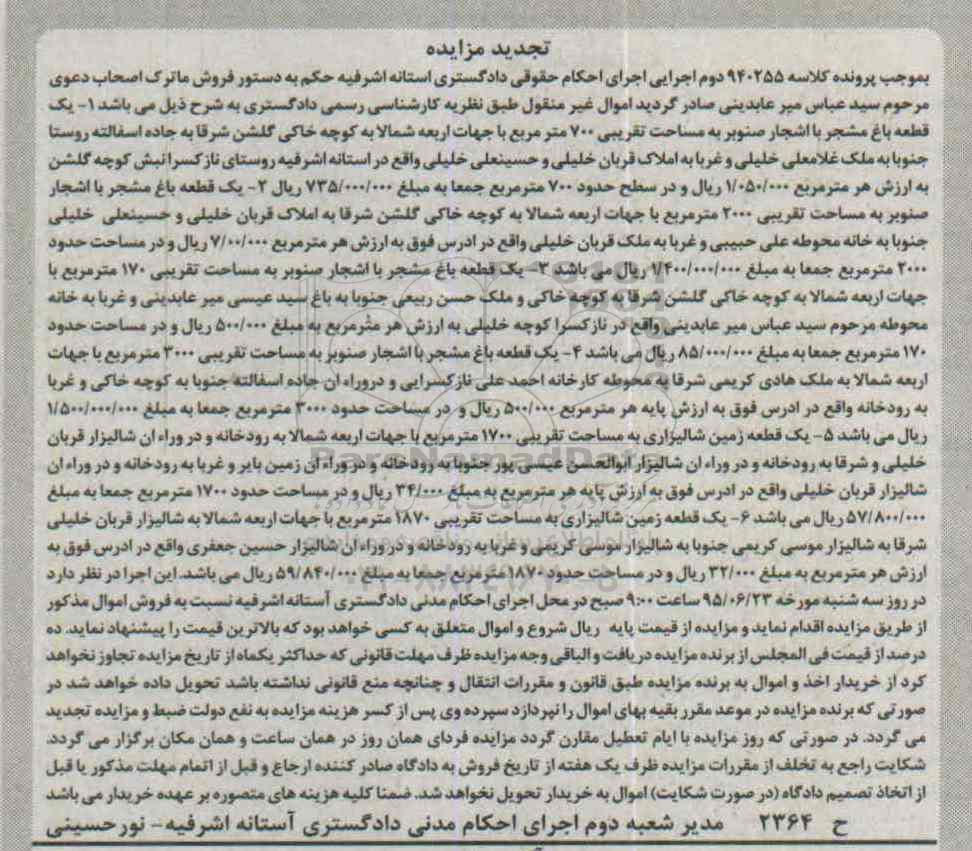 تجدید مزایده
بموجب پرونده کلاسه ۹۴۰۲۵۵ دوم اجرایی اجرای احکام حقوقی دادگستری استانه اشرفیه حکم به دستور فروش ماترک اصحاب دعوی
مرحوم سید عباس میر عابدینی صادر گردید اموال غیر منقول طبق نظریه کارشناسی رسمی دادگستری به شرح ذیل می باشد ۱- یک
قطعه باغ مشجر با اشجار صنوبر به مساحت تقریبی ۷۰۰ متر مربع با جهات اربعه شمالا به کوچه خاکی گلشن شرقا به جاده اسفالته روستا
جنوبا به ملک غلامعلی خلیلی و غربا به املاک قربان خلیلی و حسینعلی خلیلی واقع در استانه اشرفیه روستای نازکسرا نبش کوچه گلشن
به ارزش هر مترمربع ۱/۰۵۰/۰۰۰ ریال و در سطح حدود ۷۰۰ مترمربع جمعا به مبلغ ۷۳۵/۰۰۰/۰۰۰ ریال ۲- یک قطعه باغ مشجر با اشجار
صنوبر به مساحت تقریبی ۲۰۰۰ مترمربع با جهات اربعه شمالا به کوچه خاکی گلشن شرقا به املاک قربان خلیلی و حسینعلی خلیلی
جنوبا به خانه محوطه علی حبیبی و غربا به ملک قربان خلیلی واقع در ادرس فوق به ارزش هر مترمربع ۷/۰۰/۰۰۰ ریال و در مساحت حدود
۲۰۰۰ مترمربع جمعا به مبلغ ۱/۴۰۰/۰۰۰/۰۰۰ ریال می باشد ۳- یک قطعه باغ مشجر با اشجار صنوبر به مساحت تقریبی ۱۷۰ مترمربع با
جهات اربعه شمالا به کوچه خاکی گلشن شرقا به کوچه خاکی و ملک حسن ربیعی جنوبا به باغ سید عیسی میر عابدینی و غربا به خانه
محوطه مرحوم سید عباس میر عابدینی واقع در نازکسرا کوچه خلیلی به ارزش هر مترمربع به مبلغ ۵۰۰/۰۰۰ ریال و در مساحت حدود
۱۷۰ مترمربع جمعا به مبلغ ۸۵/۰۰۰/۰۰۰ ریال می باشد ۴- یک قطعه باغ مشجر با اشجار صنوبر به مساحت تقریبی ۳۰۰۰ مترمربع با جهات
اربعه شمالا به ملک هادی کریمی شرقا به محوطه کارخانه احمد علی نازکسرایی و دروراء ان جاده اسفالته جنوبا به کوچه خاکی و غربا
به رودخانه واقع در ادرس فوق به ارزش پایه هر مترمربع ۵۰۰/۰۰۰ ریال و در مساحت حدود ۳۰۰۰ مترمربع جمعا به مبلغ ۱/۵۰۰/۰۰۰/۰۰۰
ریال می باشد ۵- یک قطعه زمین شالیزاری به مساحت تقریبی ۱۷۰۰ مترمربع با جهات اربعه شمالا به رودخانه و در وراء ان شالیزار قربان
خلیلی و شرقا به رودخانه و در وراء ان شالیزار ابوالحسن عیسی پور جنوبا به رودخانه و در وراء ان زمین بایر و غربا به رودخانه و در وراء ان
شالیزار قربان خلیلی واقع در ادرس فوق به ارزش پایه هر مترمربع به مبلغ ۳۴/۰۰۰ ریال و در مساحت حدود ۱۷۰۰ مترمربع جمعا به مبلغ
۵۷/۸۰۰/۰۰۰ ریال می باشد ۶- یک قطعه زمین شالیزاری به مساحت تقریبی ۱۸۷۰ مترمربع با جهات اربعه شمالا به شالیزار قربان خلیلی
شرقا به شالیزار موسی کریمی جنوبا به شالیزار موسی کریمی و غربا به رودخانه و در وراء ان شالیزار حسین جعفری واقع در ادرس فوق به
ارزش هر مترمربع به مبلغ ۳۲/۰۰۰ ریال و در مساحت حدود ۱۸۷۰ مترمربع جمعا به مبلغ ۵۹/۸۴۰/۰۰۰ ریال می باشد. این اجرا در نظر دارد
در روز سه شنبه مورخه ۹۵/۰۶/۲۳ ساعت ۹:۰۰ صبح در محل اجرای احکام مدنی دادگستری آستانه اشرفیه نسبت به فروش اموال مذکور
از طریق مزایده اقدام نماید و مزایده از قیمت پایه ریال شروع و اموال متعلق به کسی خواهد بود که بالاترین قیمت را پیشنهاد نماید. ده
درصد از قیمت فی المجلس از برنده مزایده دریافت و الباقی وجه مزایده ظرف مهلت قانونی که حداکثر یکماه از تاریخ مزایده تجاوز نخواهد
کرد از خریدار اخذ و اموال به برنده مزایده طبق قانون و مقررات انتقال و چنانچه منع قانونی نداشته باشد تحویل داده خواهد شد در
صورتی که برنده مزایده در موعد مقرر بقیه بهای اموال را نپردازد سپرده وی پس از کسر هزینه مزایده به نفع دولت ضبط و مزایده تجدید
می گردد. در صورتی که روز مزایده با ایام تعطیل مقارن گردد مزایده فردای همان روز در همان ساعت و همان مکان برگزار می گردد.
شکایت راجع به تخلف از مقررات مزایده ظرف یک هفته از تاریخ فروش به دادگاه صادر کننده ارجاع و قبل از اتمام مهلت مذکور یا قبل
از اتخاذ تصمیم دادگاه (در صورت شکایت) اموال به خریدار تحویل نخواهد شد. ضمنا کلیه هزینه های متصوره بر عهده خریدار می باشد
ح ۲۳۶۴ مدیر شعبه دوم اجرای احکام مدنی دادگستری آستانه اشرفیه- نورحسینی
ParsNamadData